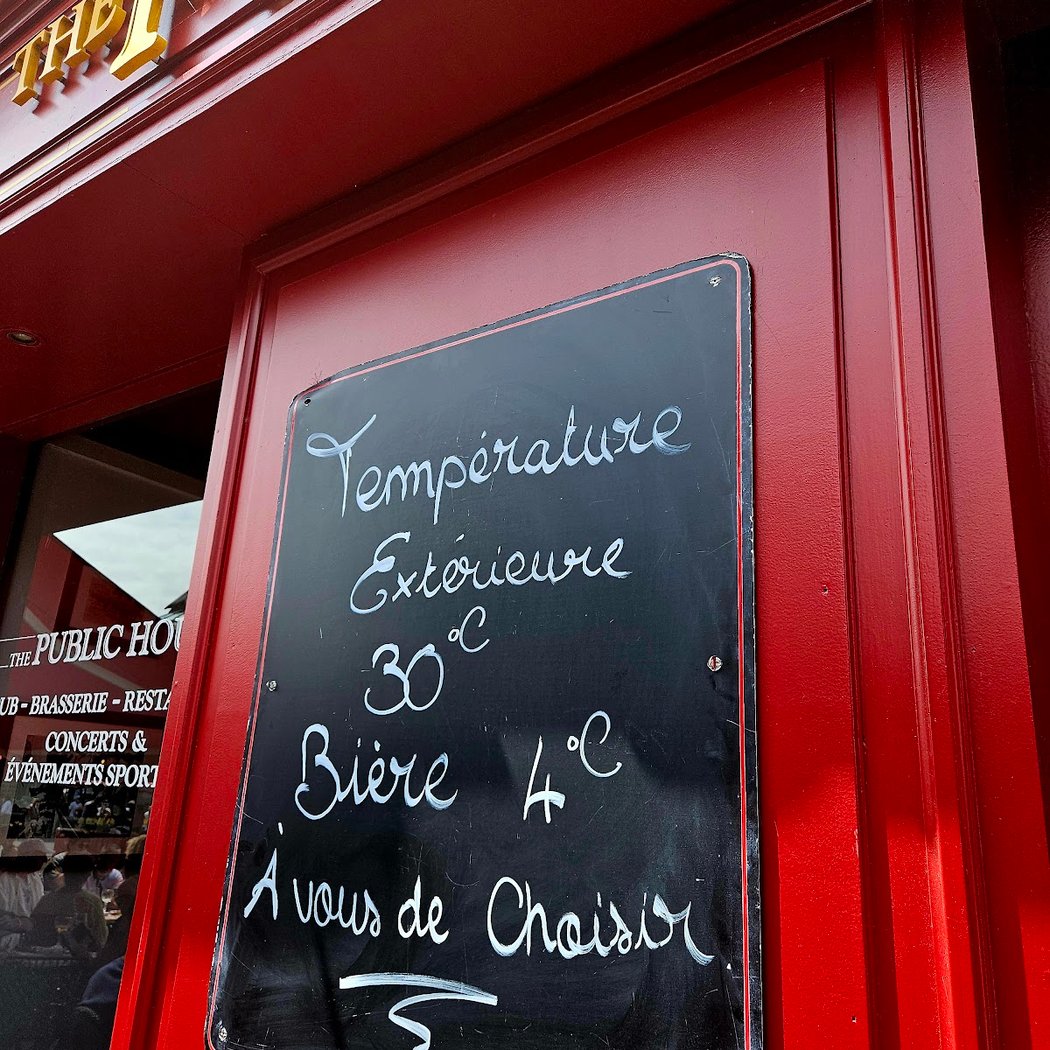 THE
THE PUBLIC
BRASSERIE -
CONCERTS &
ÉVÉNEMENTS
Température
Extérieure
30°C
Bière 4°C
À vous de Choisir